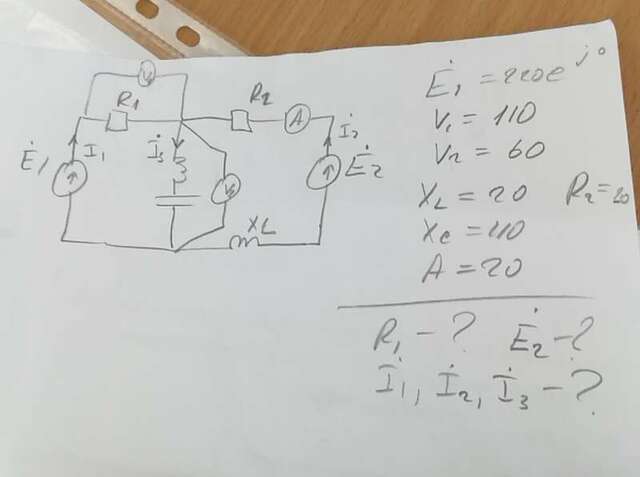 V₁
R₁
R₂
A
İ₁
İ₃
İ₂
Ė₁
Ė₂
V₂
XL
Ė₁ = 220e^j0
V₁ = 110
V₂ = 60
XL = 20 R₂ = 20
Xc = 40
A = 20
R₁ - ? Ė₂ - ?
İ₁, İ₂, İ₃ - ?